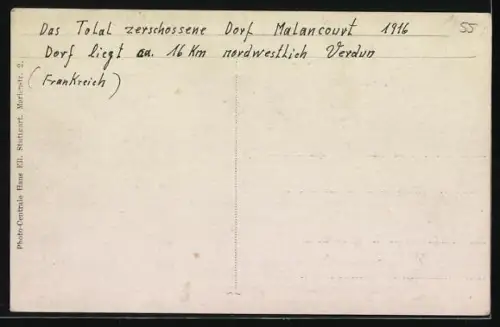 Das Total zerschossene Dorf Malancourt 1916
55
Dorf liegt ca. 16 Km nordwestlich Verdun
(Frankreich)
Photo-Centrale Hans Ell, Stuttgart, Marienstr. 2.